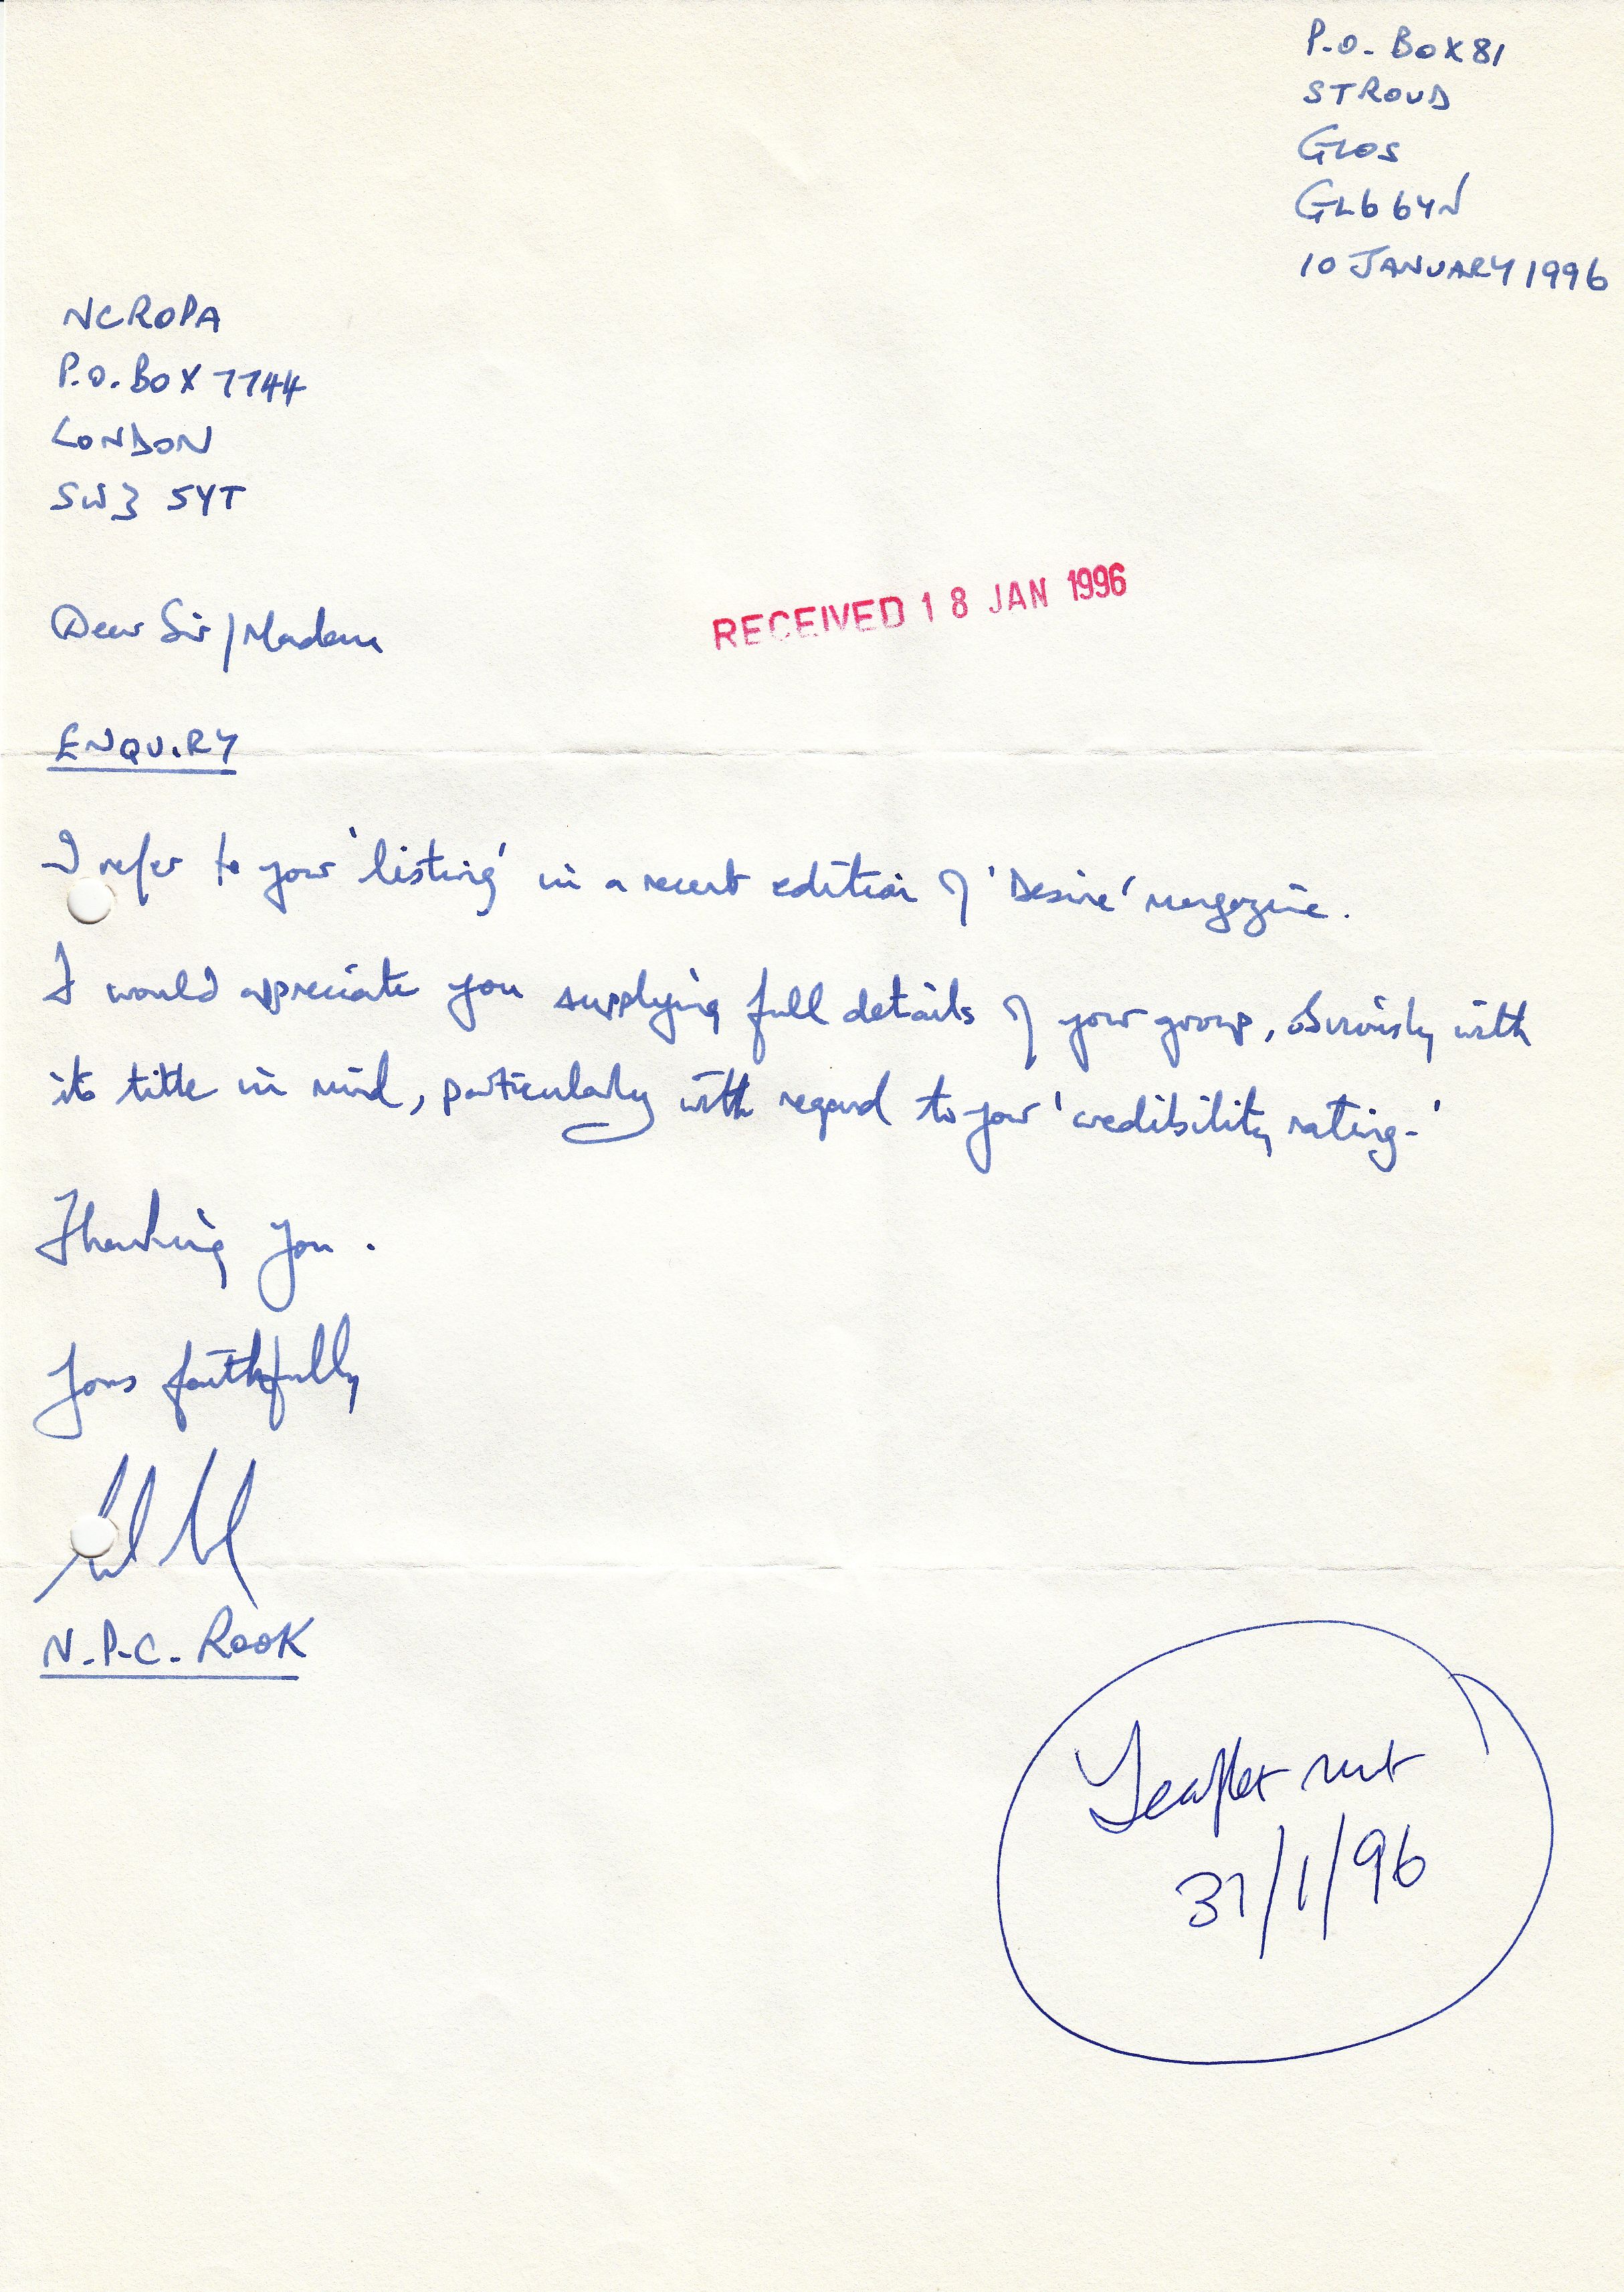 P.O. BOX 81
STROUD
GLOS
GL6 6YN
10 JANUARY 1996
NCROPA
P.O. BOX 7744
LONDON
SW3 5YT
Dear Sir/Madam
RECEIVED 18 JAN 1996
ENQUIRY
I refer to your 'listing' in a recent edition of 'Desire' magazine.
I would appreciate you supplying full details of your group, obviously with
its title in mind, particularly with regard to your 'credibility rating.'
Thanking you.
Yours faithfully
N.P.C. ROOK
Leaflet sent
31/1/96